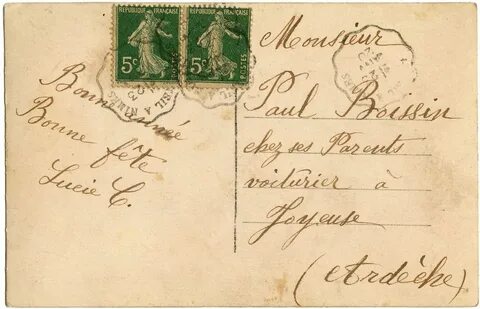 RÉPUBLIQUE FRANÇAISE RÉPUBLIQUE FRANÇAISE
5c POSTES 5c POSTES
A NIMES
Bonne année
Bonne fête
Lucie C.
Monsieur
Paul Boissin
chez ses Parents
voiturier à
Joyeuse
(Ardèche)